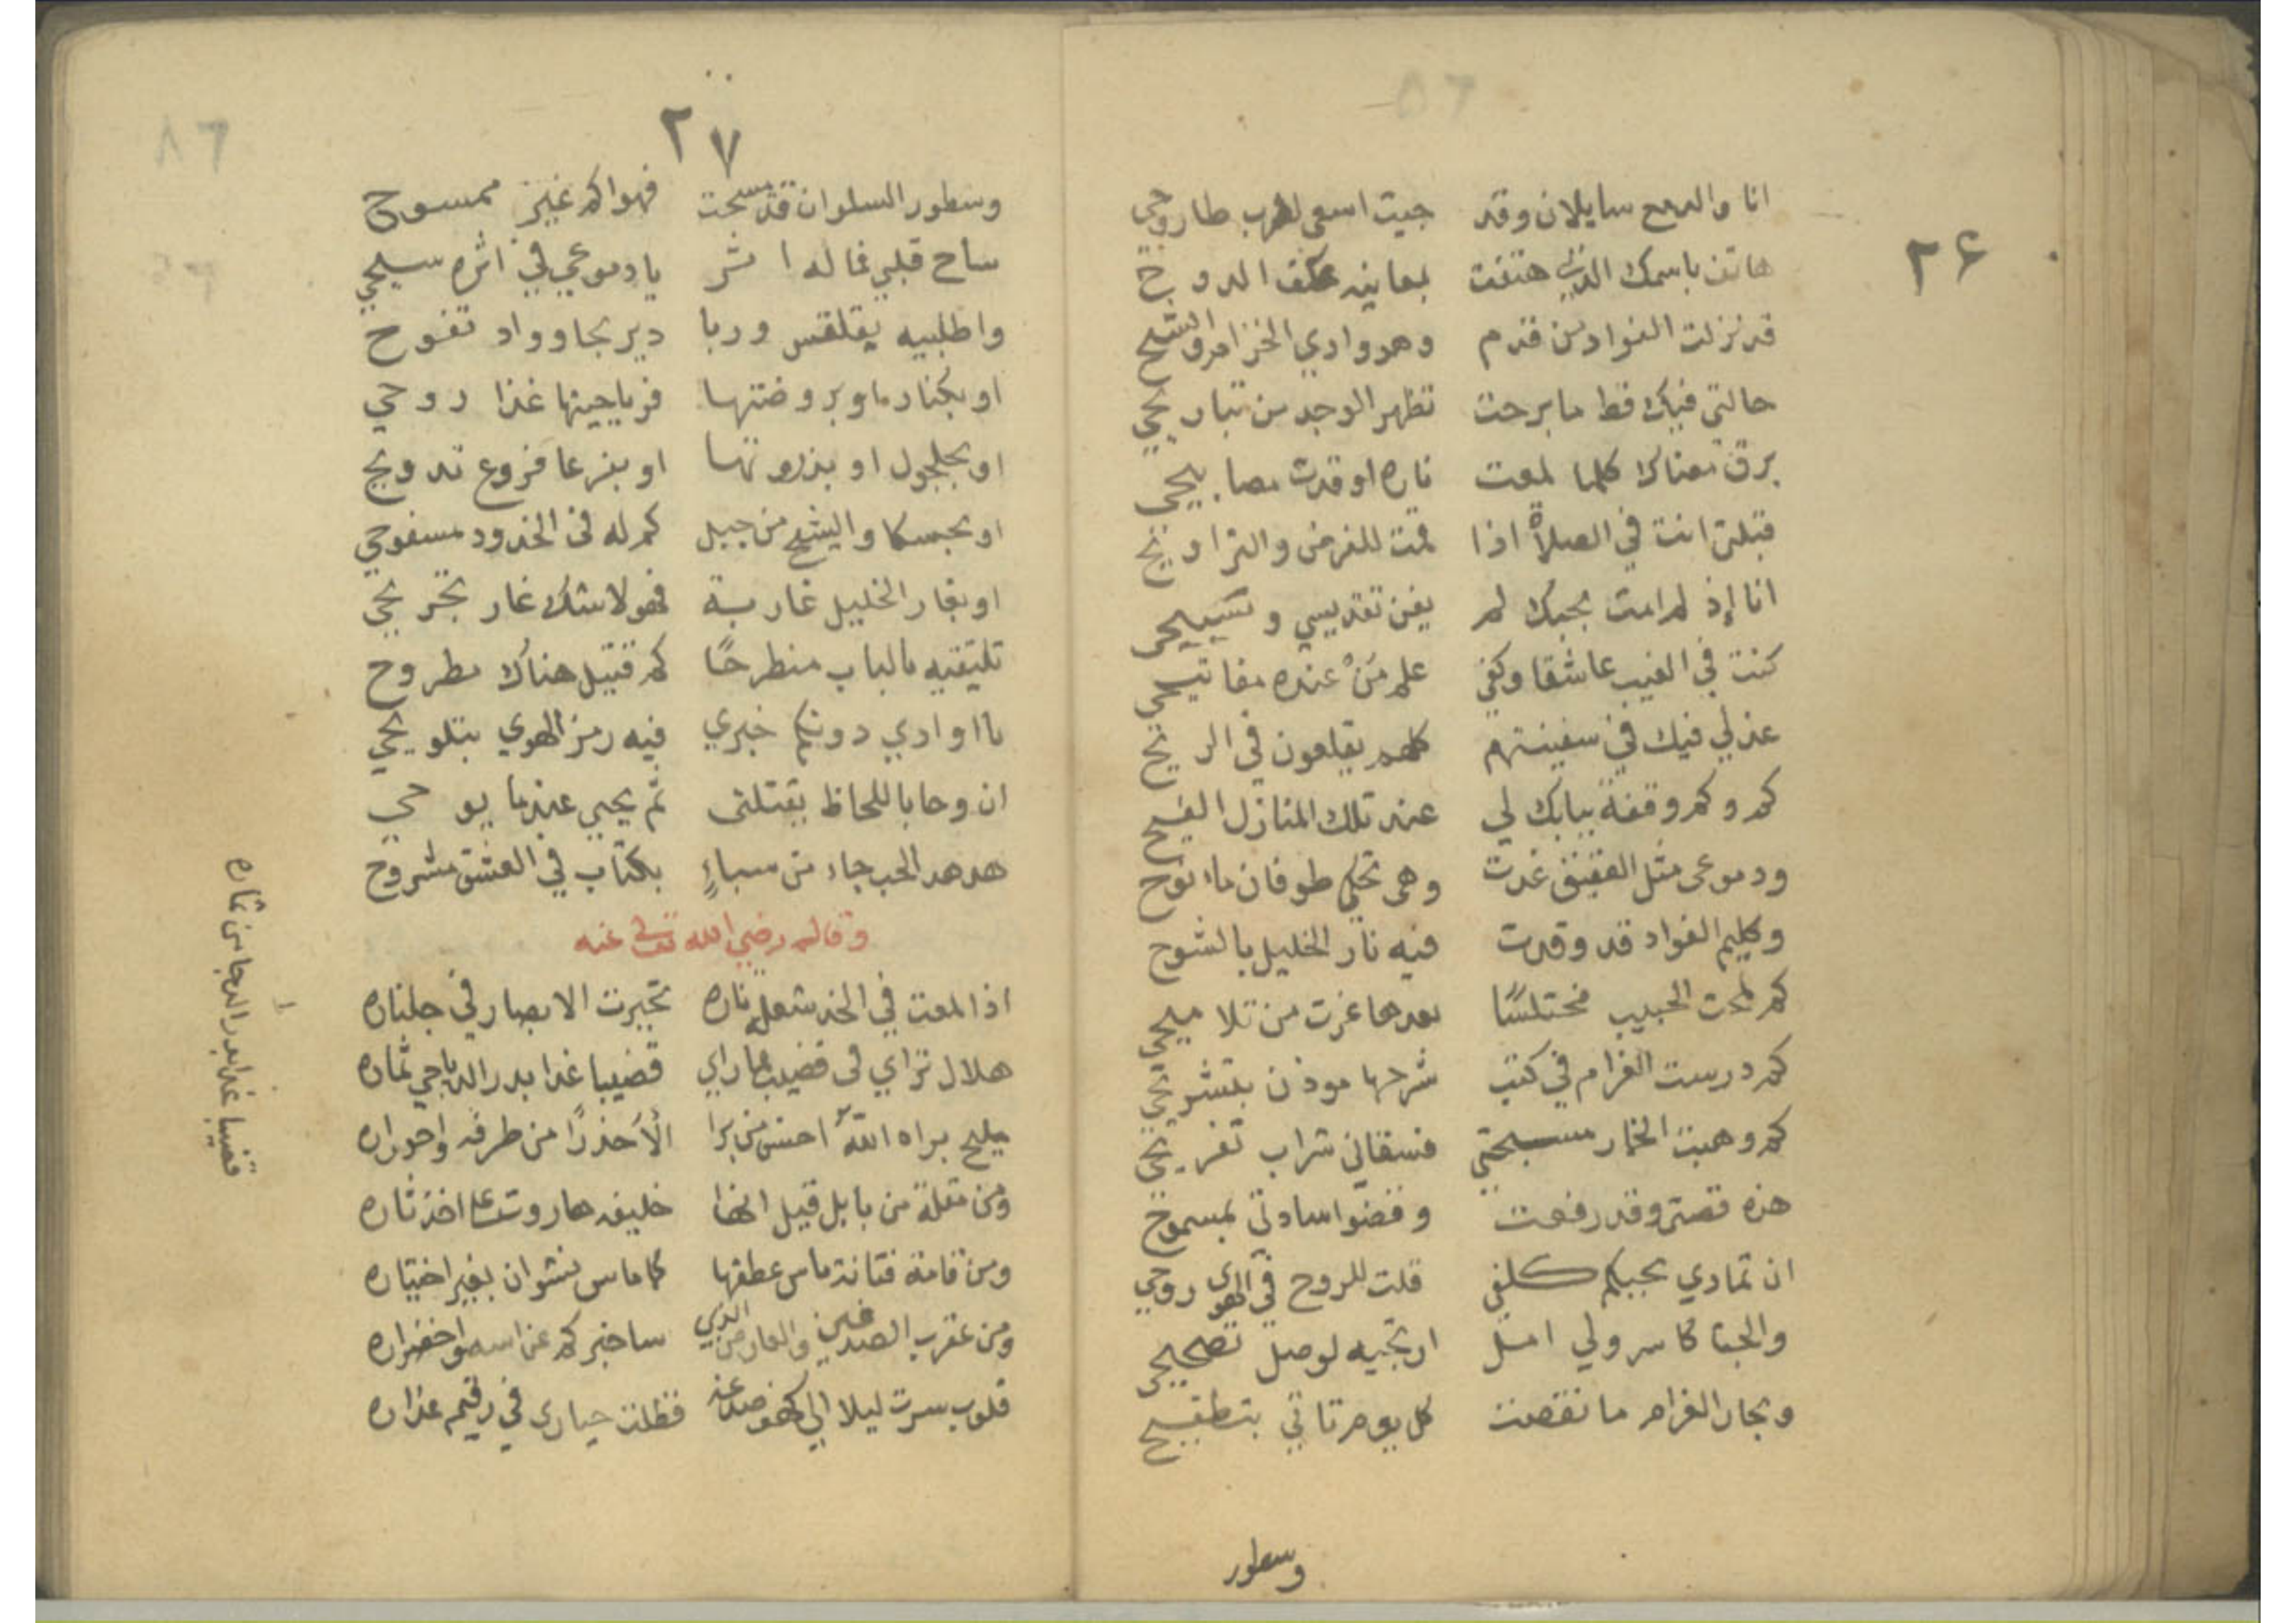 ٢٦
انا والدمع سايلان وقد جيت اسعى لقرب طاروحي
هاتف باسمك الذي هتفت بمعانيه عكف الدوح
قد نزلت الفواد من قدم وهو وادي الخزامى والشيح
حالتي فيك قط ما برحت تظهر الوجد من تباريحي
برق معناك كلما لمعت ناره اوقدت مصابيحي
قبلتي انت في الصلاة اذا قمت للفرض والتراويح
انا إذ لم امت بحبك لم يغن تقديسي وتسبيحي
كنت في الغيب عاشقا وكفي علم مَنْ عنده مفاتيحي
عذلي فيك في سفينتهم كلهم يقلعون في الريح
كم وكم وقفة ببابك لي عند تلك المنازل الفيح
ودموعى مثل العقيق غدت وهى تحكي طوفان ماء نوح
وكليم الفواد قد وقدت فيه نار الخليل بالشوح
كم لمحت الحبيب مختلسًا بعدها غرت من تلاميحي
كم درست الغرام في كتب شرحها موذن بتشريحي
كم وهبت الخمار مسبحتي فسقاني شراب تفريحي
هذه قصتي وقد رفعت وقضوا سادتي بمسموح
ان تمادي بحبكم كلفي قلت للروح في الهوى روحي
والجنا كاسر ولي امل ارتجيه لوصل تصحيحي
وبحار الغرام ما نقصت كل يوم تاتي بتطفيح
وسطور
٨٦
٢٧
وسطور السلوان قد مسحت فهواكم غير ممسوح
ساح قلبي فما له اثر يا دموعي في اثره سيحي
واطلبيه يقلقس وربا دير بحا وواد تفوح
او بكنار ماوبروضتها فرياحينها غذا روحي
او بجلجول او بذرونها او بفرعا فروع تدويح
او بحبسكا والشيح من جبل كم له فى الخدود مسفوحي
او بغار الخليل غار بة فهو لا شك غار تجريحي
تلتقيه بالباب منطرحًا كم قتيل هناك مطروح
يا اوادي دونكم خبري فيه رمز الهوي بتلويحي
ان وحا باللحاظ يقتلنى ثم يحيي عندما يوحي
هدهد الحب جاء من سباءٍ بكتاب في العشق مشروح
وقال رضي الله تعالى عنه
اذا لمعت في الخد شعلة ناره تحيرت الابصار في جلناره
هلال تراي فى قضيب فما راي قضيبا غدا بدر الدياجي ثماره
مليح براه اللهُ احسن من برا الاحذرًا من طرفه واحوراره
ومن مقلة من بابل قيل انها خليفه هاروت على اخذ ثاره
ومن قامة فتانة ماس عطفها كما ماس نشوان بغير اختياره
ومن عقرب الصدغين والعارض الذي ساخبركم عن اسه واخضراره
قلوب سرت ليلا الي كهف صدغه فظلت حيارى في رقيم عذاره
قضيبا غدا بدر الدجا من ثماره